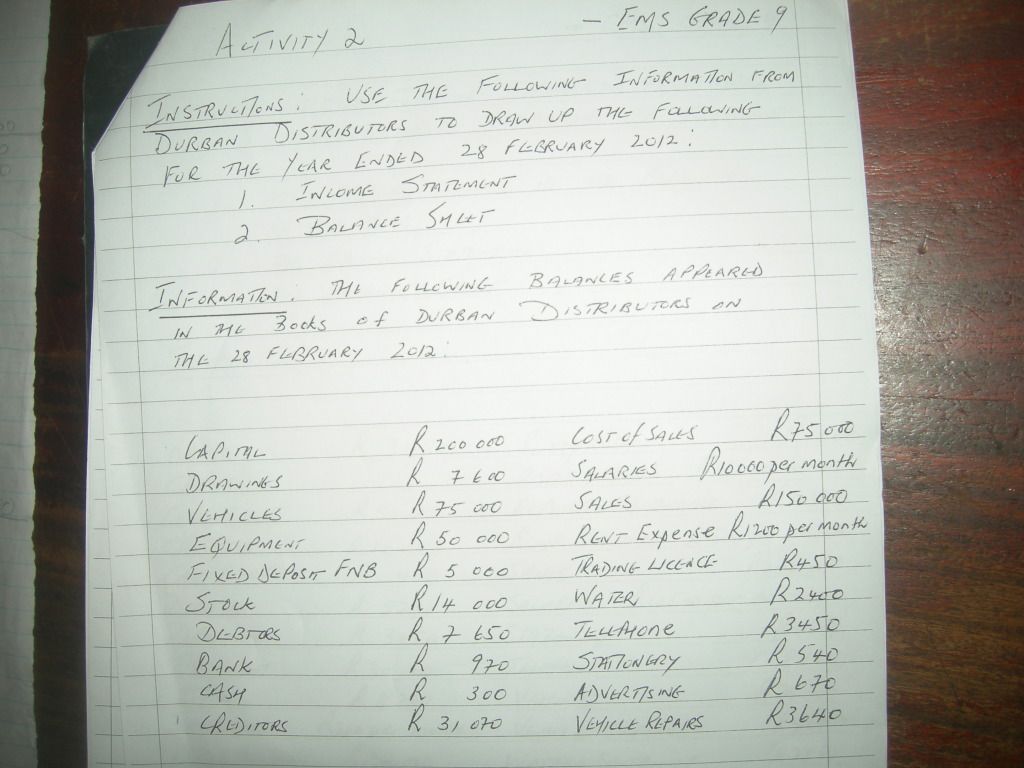 ACTIVITY 2 – EMS GRADE 9
INSTRUCTIONS: USE THE FOLLOWING INFORMATION FROM
DURBAN DISTRIBUTORS TO DRAW UP THE FOLLOWING
FOR THE YEAR ENDED 28 FEBRUARY 2012:
1. INCOME STATEMENT
2. BALANCE SHEET
INFORMATION: THE FOLLOWING BALANCES APPEARED
IN THE BOOKS OF DURBAN DISTRIBUTORS ON
THE 28 FEBRUARY 2012:
CAPITAL R 200 000 COST OF SALES R75 000
DRAWINGS R 7 600 SALARIES R10000 per month
VEHICLES R 75 000 SALES R150 000
EQUIPMENT R 50 000 RENT Expense R1200 per month
FIXED DEPOSIT FNB R 5 000 TRADING LICENCE R450
STOCK R 14 000 WATER R2400
DEBTORS R 7 650 TELEPHONE R3450
BANK R 970 STATIONERY R 540
CASH R 300 ADVERTISING R 670
CREDITORS R 31 070 VEHICLE REPAIRS R3640